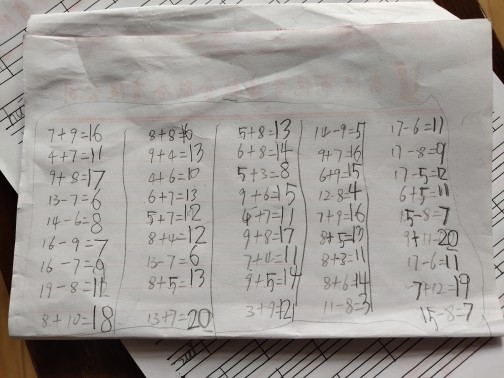 7+9=16
4+7=11
9+8=17
13-7=6
14-6=8
16-9=7
16-7=9
19-8=11
8+10=18
8+8=16
9+4=13
4+6=10
6+7=13
5+7=12
8+4=12
13-7=6
8+5=13
13+7=20
5+8=13
6+8=14
5+3=8
9+6=15
4+7=11
9+8=17
7+4=11
9+5=14
3+9=12
14-9=5
9+7=16
6+9=15
12-8=4
7+9=16
8+5=13
8+3=11
8+6=14
11-8=3
17-6=11
17-8=9
17-5=12
6+5=11
15-8=7
9+11=20
17-6=11
7+12=19
15-8=7